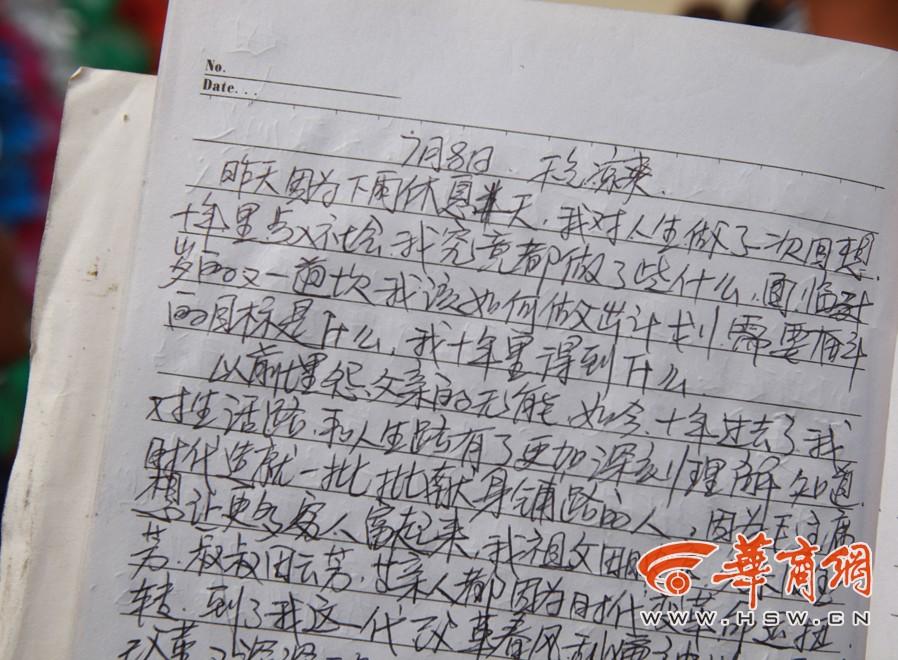 No.
Date...
7月8日 凉爽
昨天因为下雨休息半天,我对人生做了一次回想.
十年里步入社会,我究竟都做了些什么,面临
岁的又一道坎,我该如何做出计划,需要奋斗
的目标是什么,我十年里得到什么.
以前埋怨父亲的无能,如今十年过去了我
对生活路,和人生路有了更加深刻理解知道
时代造就一批批献身铺路的人,因为毛主席
想让更多穷人富起来,我祖父田
芳.叔叔田云芳,廿亲人都因为时代
转,到了我这一代改革春风
改革
華商網
WWW.HSW.CN